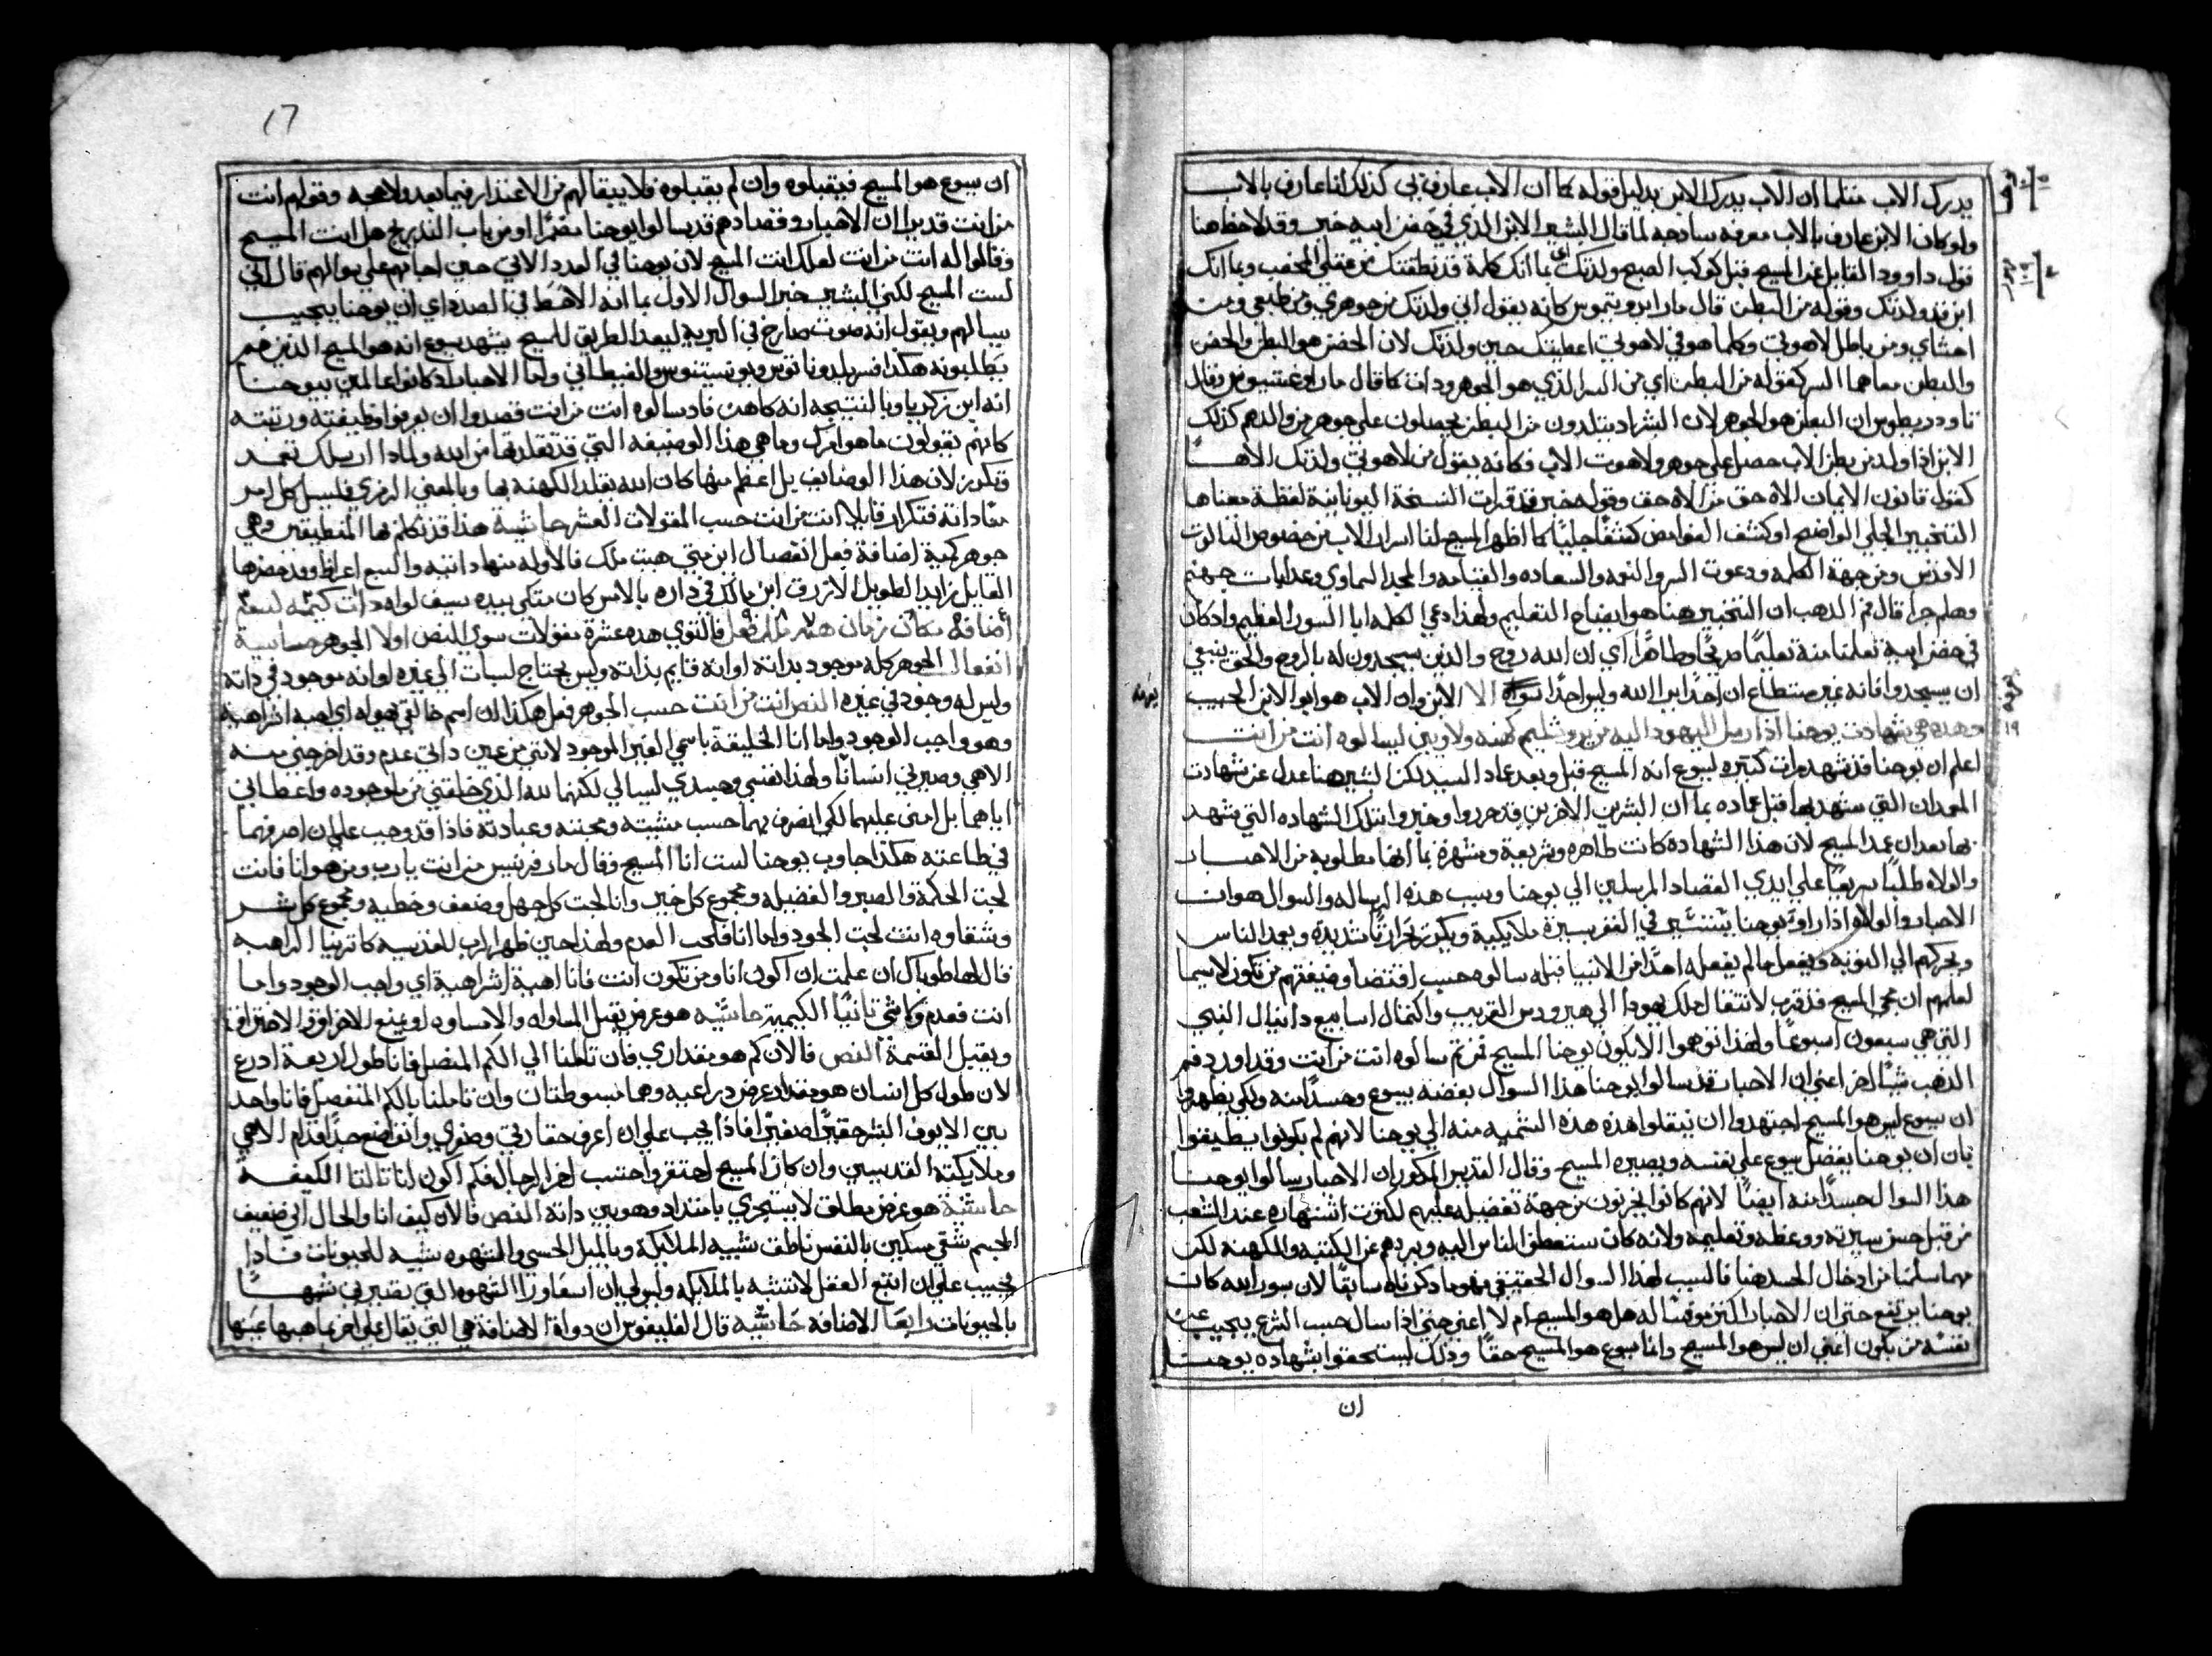 يدرك الاب مثلما ان الاب يدرك الابن بدليل قوله كما ان الاب عارف بي كذلك انا عارف بالاب
ولو كان الابن عارف بالاب معرفه سادجه لما قال البشير الابن الذي في حضن ابيه خبر وقد لاحظ هنا
قول داوود القايل عن المسيح قبل كوكب الصبح ولدتك اي بما انك كلمة قد نطقتك من عقلي المخصب وبما انك
ابن قد ولدتك وقوله من البطن قال مار ايرونيموس كانه يقول اني ولدتك من جوهري ومن طبعي ومن
احشاي ومن باطن لاهوتي وكلما هو في لاهوتي اعطيتك حين ولدتك لان الحضن هو البطن والحضن
والبطن معاهما السر كقوله من البطن اي من السر الذي هو الجوهر ودات كما قال مار اوغسطينوس وقال
تاودوريطوس ان البطن هو الجوهر لان البشر اد يتلدون من البطن يحصلون على جوهر والدهم كذلك
الابن اذا ولد من بطن الاب حصل على جوهر ولاهوت الاب فكانه يقول من لاهوتي ولدتك الاهًا
كقول قانون الايمان الاه حق من الاه حق وقوله خبر قد قرات النسخة اليونانية لفظة معناها
التخبير الجلي الواضح او كشف الغوامض كشفًا جليًا كما اظهر المسيح لنا اسرار الاب من خصوص الثالوت
الاقدس ومن جهة الكلمه ودعوت السر والتوبه والسعاده والقيامه والمجد السماوي وعدابات جهنم
وهلم جرا قال فم الدهب ان التخبير هنا هو ايضاح التعليم ولهذا دعي الكلمه ايا السور العظيم وادكان
في حضن ابيه تعلمنا منه تعليمًا صريحًا وظاهرًا اي ان الله روح والدين يسجدون له بالروح والحق ينبغي
ان يسجدوا فانه غير مستطاع ان احدًا يرا الله وليس احدًا سواه الا الابن وان الاب هو ابو الابن الحبيب
وهده هي شهادت يوحنا اذ ارسل اليهود اليه من يروشليم كهنه ولاويين ليسالوه انت من انت
اعلم ان يوحنا قد شهد مرات كثيره ليسوع انه المسيح قبل وبعد عماد السيد لكن البشير هنا عدل عن شهادت
المعمدان التي شهد بها قبل عماده بما ان البشرين الاخرين قد حرروا وخبروا بتلك الشهاده التي شهد
بها بعد ان عمد المسيح لان هذا الشهادة كانت ظاهره وشريعية ومشهرة بما انها مطلوبه من الاحبار
والولاه طلبًا شريعيًا على ايدي القصاد المرسلين الي يوحنا وسبب هذه الرساله والسوال هو ان
الاحبار والولاه اذ راوا يوحنا يتسير في القفر بسيرة ملايكية ويكرز كرازتًا شديدة ويعمد الناس
ويحركهم الي التوبه ويفعل ما لم يفعله احدًا من الانبيا قبله سالوه حسب اقتضا وضيفتهم من تكون لاسيما
لعلمهم ان مجي المسيح قد قرب لانتقال ملك يهودا الي هيرودس الغريب واكتمال اسابيع دانيال النبي
التي هي سبعون اسبوعًا ولهذا توهموا الا يكون يوحنا المسيح فمن تم سالوه انت من انت وقد اورد فم
الدهب شيًا اخر اعني ان الاحبار قد سالوا يوحنا هذا السوال بغضه بيسوع وحسدًا منه ولكي يظهر في
ان يسوع ليس هو المسيح اجتهدوا ان ينقلوا هذه هذه التسميه منه الي يوحنا لانهم لم يكونوا يطيقوا
بان ان يوحنا يفضل يسوع على نفسه ويصيره المسيح وقال القديس المدكور ان الاحبار سالوا يوحنا
هذا السوال حسدًا منه ايضًا لانهم كانوا يحزنون من جهة تفضيله عليهم لكترت اشتهاره عند الشعب
من قبل حسن سيرته ووعظه وتعليمه ولانه كان يستعطف الناس اليه ويبردهم عن الكتبه والكهنه لكن
مهما سلمنا من ادخال الحسد هنا فالسبب لهذا السوال الحقيقي هو ما دكرناه سابقًا لان سور الله كانت
يوحنا يرتفع حتى ان الاحبار اكترتوا فيسًا له هل هو المسيح ام لا اعني حتى اذا سال حسب الشرع يجيب عن
نفسه من يكون اعني ان ليس هو المسيح وانما يسوع هو المسيح حقًا وذلك ليستحقوا بشهاده يوحنا
ان
١٩
17
ان يسوع هو المسيح فيقبلوه وان لم يقبلوه فلا يبقا لهم من الاعتدار فيما بعد ولا حجه وقولهم انت
من انت قد يرا ان الاحبار وقصادهم قد سالوا يوحنا مضمرًا او من باب التدريج هل انت المسيح
وقالوا له انت من انت لعلك انت المسيح لان يوحنا في العدد الاتي حين اجابهم على سوالهم قال اني
لست المسيح لكن البشير خبر السوال الاول بما انه الاهط في الصدر اي ان يوحنا يجيب
سالهم ويقول انه صوت صارخ في البرية ليعد الطريق للمسيح يشهد يسوع انه هو المسيح الدين هم
يطلبونه هكذا فسر يلدوناتوس ويونستنوس والغبطاني واما الاحبار اد كانوا عالمين بيوحنا
انه ابن زكريا وبالنتيجه انه كاهن فاد سالوه انت من انت قصدوا ان يعرفوا وظيفته ورتبته
كانهم يقولون ما هو امرك وما هي هذا الوضيفه التي قد تقلدتها من الله ولمادا ارسلك تعمد
وتكرز لان هذا الوضايف بل اعظم منها كان الله يقلد الكهنه بها وبالمعني الرمزي فليسل كل امر
منا داته فتكرار قايلا انت من انت حسب المقولات العشر حاشية هذا قد تكلم بها المنطيقين وهي
جوهر كمية اضافة فعل انفعال اين متي هيت ملك فالاوله منها داتيه والتسع اعراض وقد حضرها
القايل زايد الطويل الازرق ابن مالك في داره بالامس كان متكي بيده سيف لواه
اضافه مكان زمان ملك فعل فالتوي هده عشرة مقولات سوي النص اولا الجوهر حاشية
انفعال الجوهر كله موجود بداته او انه قايم بداته وليس يحتاج لثبات الي غيره او انه موجود في داته
وليس له وجود في غيره النص انت من انت حسب الجوهر قل هكذا ان اسم خالقي هو اي اهيه اشراهيه
وهو واجب الوجود واما انا الخليقة باسمي الغير الموجود لانني من عين داتي عدم وقد اخرجني منه
الاهي وصيرني انسانًا ولهذا نفسي وجسدي ليسا لي لكنهما لله الذي خلقني من لا وجوده واعطاني
اياهما بل امنني عليهما لكي اتصرف بهما حسب مشيته ومحبته وعبادته فاذا قد وجب علي ان اصرفهما
في طاعته هكذا جاوب يوحنا لست انا المسيح وقال مار فرنسيس من انت يا رب ومن هو انا فانت
لجت الحكمة والصبر والفضيله ومجموع كل خير وانا لجت كل جهل وضعف وخطيه ومجموع كل شر
وشقاوه انت لجت الجود واما انا فلجت العدم ولهذا حين ظهر الرب للقديسه كاترينا الراهبه
قال لها طوباك ان علمت ان اكون انا ومن تكون انت فانا اهية اشراهية اي واجب الوجود واما
انت فعدم وكلاشي تانيًا الكميه حاشيه هو عرض يقبل المساواه والامساواه او يمنع الاحراق في الاحتراق
ويقبل القسمة النص فالان كم هو مقداري فان تاملنا الي الكم المتصل فانا طول اربعة ادرع
لان طول كل انسان هو مقدار عرض دراعيه وهما مبسوطتان وان تاملنا بالكم المنفصل فانا واحد
بين الايوف البشر حقيرًا صغيرًا فاذا يجب علي ان اعرف حقارتي وصغري واتضع جدًا قدام الاهي
وملايكته القديسين وان كان المسيح احتقر واحتسب اخر الرجال فكم اكون انا تالتا الكيفه
حاشية هو عرض مطلق لا يتجزي بامتداد وهو بين داته النص فالان كيف انا والحال اني ضعيف
الجسم شقي مسكين بالنفس ناطق شبيه الملايكة وبالميل الحسي والشهوه شبيه للحيونات فادا
يجب علي ان اتبع العقل لاتشبه بالملايكه وليس لي ان اسعا ورا الشهوه التي تصيرني شبهًا
بالحيونات رابعًا الاضافة حاشيه قال الفليفوس ان دواة الاضافة هي التي يقال علي اخر بما هيها عينها